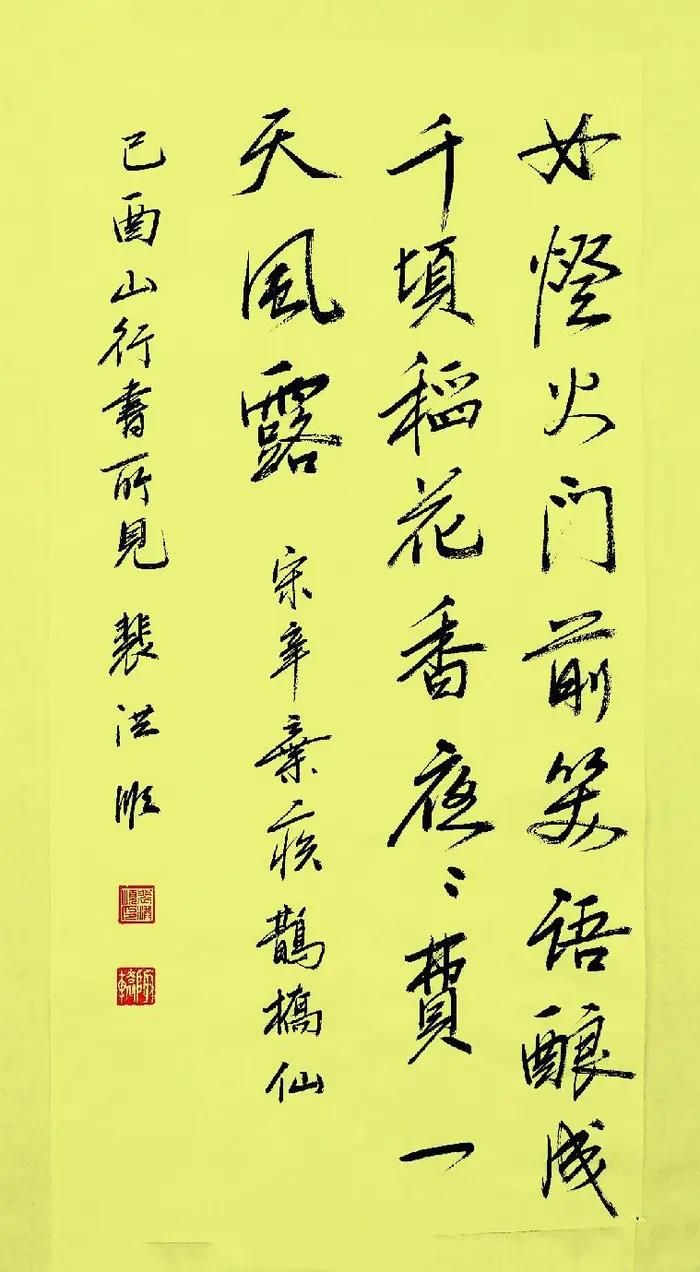 女燈火门前笑语酿成
千頃稻花香夜〻費一
天風露 宋辛棄疾鵲橋仙
己酉山行書所見 裴洪顺